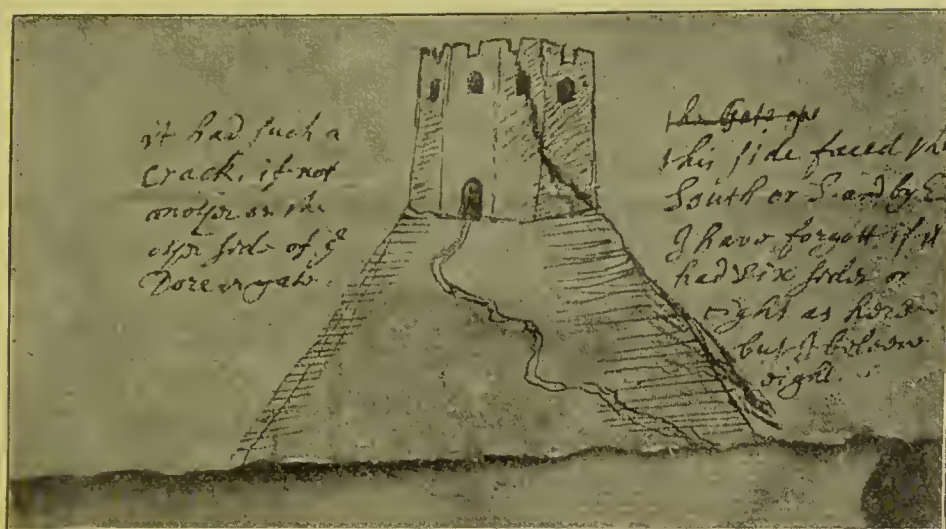 it had such a
crack, if not
anoyr on the
oyr side of ye
Dore or gate.
the Gate of
this side faced the
South or S. and by E
I have forgott if it
had Six sides or
eight as here
but I beleeve
eight.